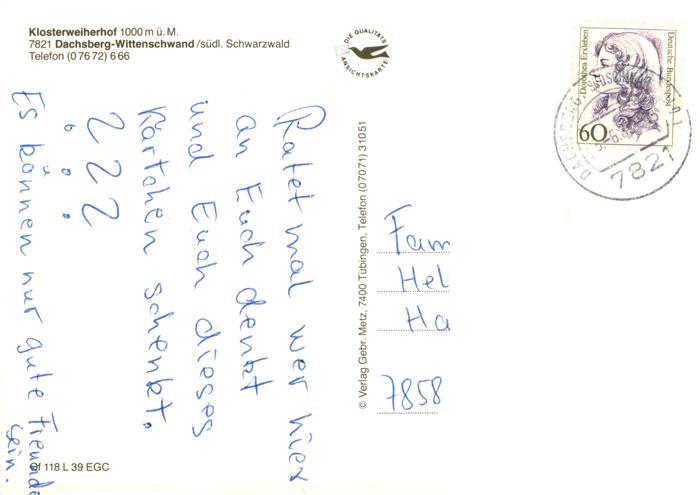 Klosterweiherhof 1000 m ü. M.
7821 Dachsberg-Wittenschwand /südl. Schwarzwald
Telefon (0 76 72) 6 66
DIE QUALITÄTS
ANSICHTSKARTE
Dorothea Erxleben
Deutsche Bundespost
60
7821
Ratet mal wer hier
an Euch denkt
und Euch dieses
Kärtchen schenkt.
? ? ?
Es können nur gute Freunde
sein.
© Verlag Gebr. Metz, 7400 Tübingen, Telefon (0 70 71) 3 10 51
Fam
Hel
Ha
7858
118 L 39 EGC